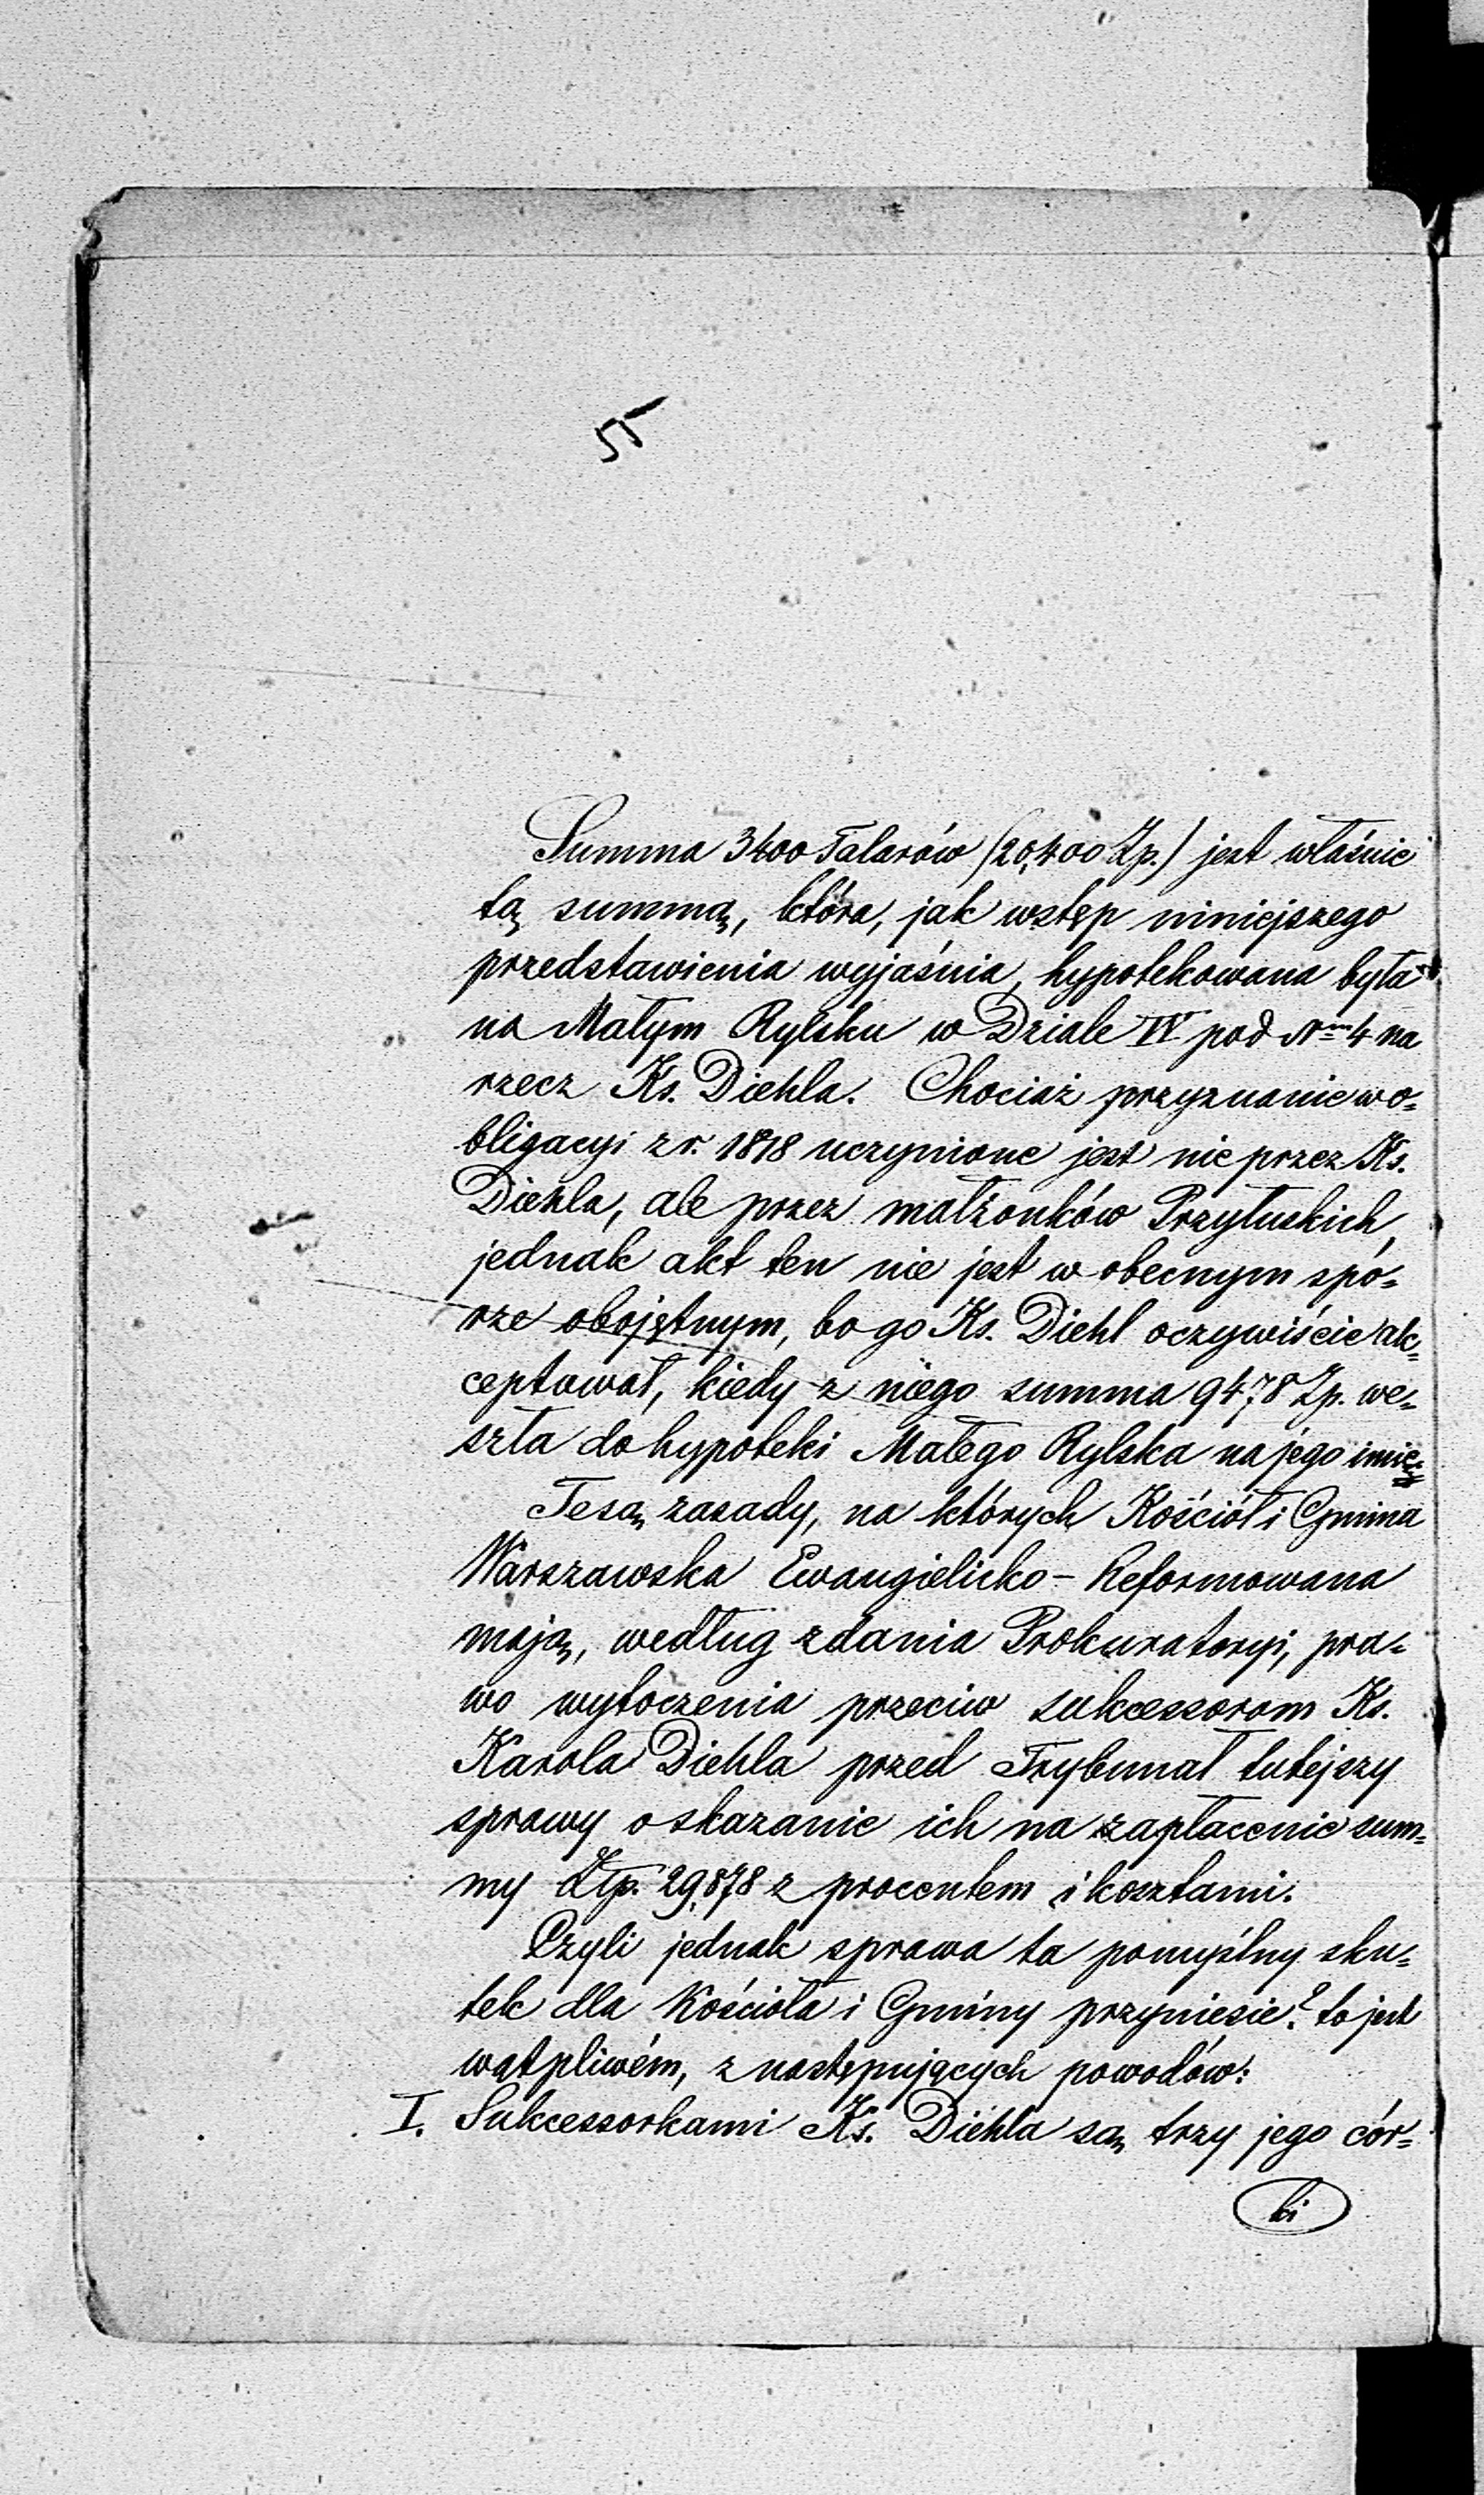 55
Summa 3400 Talarów (20,400 Zp.) jest właśnie
tą summą, która, jak wstęp niniejszego
przedstawienia wyjaśnia, hypotekowana była
na Małym Rylsku w Dziale IV pod Nrm 4 na
rzecz Ks. Diehla. Chociaż przyznanie w o-
bligacyi z r. 1818 uczynione jest nie przez Ks.
Diehla, ale przez małżonków Przyłuskich,
jednak akt ten nie jest w obecnym spo-
rze obojętnym, bo go Ks. Diehl oczywiście ak-
ceptował, kiedy z niego summa 9478 Zp. we-
szła do hypoteki Małego Rylska na jego imię
Te są zasady, na których Kościół i Gmina
Warszawska Ewangielicko-Reformowana
mają, według zdania Prokuratoryi, pra-
wo wytoczenia przeciw sukcessorom Ks.
Karola Diehla przed Trybunał tutejszy
sprawy o skazanie ich na zapłacenie sum-
my Złp. 29,878 z procentem i kosztami.
Czyli jednak sprawa ta pomyślny sku-
tek dla Kościoła i Gminy przyniesie? to jest
wątpliwém, z następujących powodów:
I. Sukcessorkami Ks. Diehla są trzy jego cór-
ki